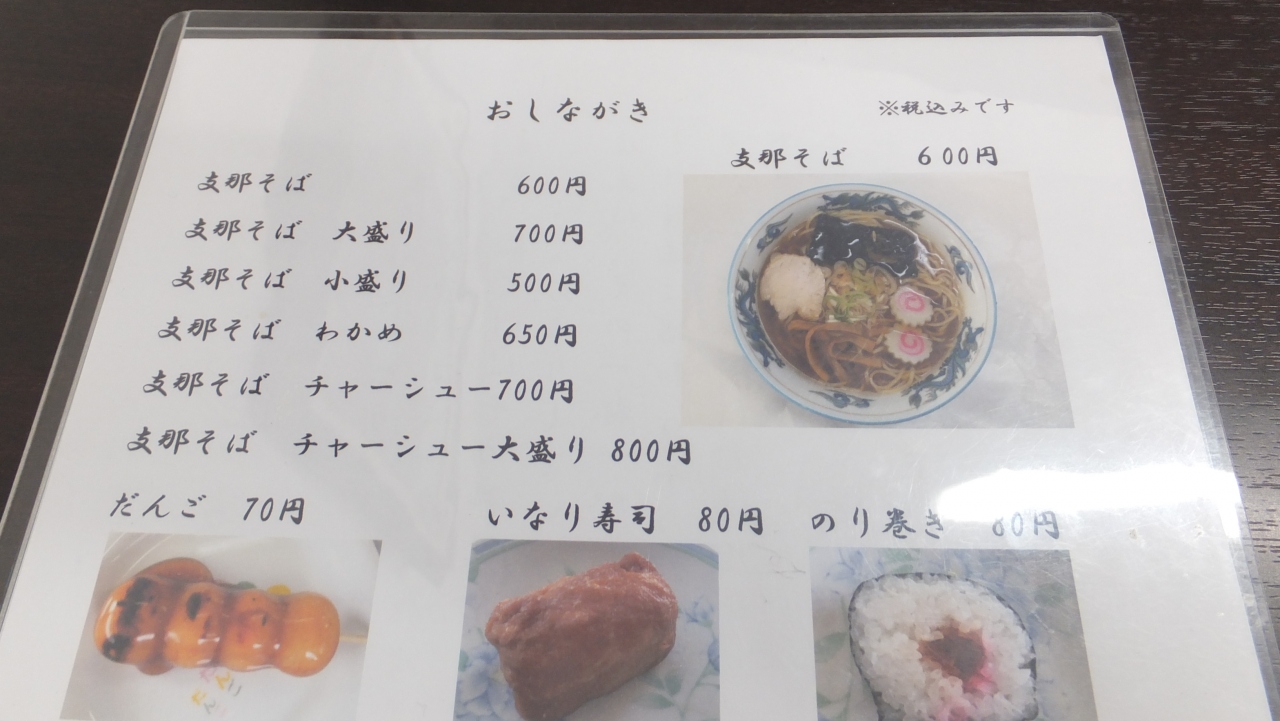 おしながき
※税込みです
支那そば 600円
支那そば 大盛り 700円
支那そば 小盛り 500円
支那そば わかめ 650円
支那そば チャーシュー700円
支那そば チャーシュー大盛り 800円
支那そば 600円
だんご 70円
いなり寿司 80円
のり巻き 80円